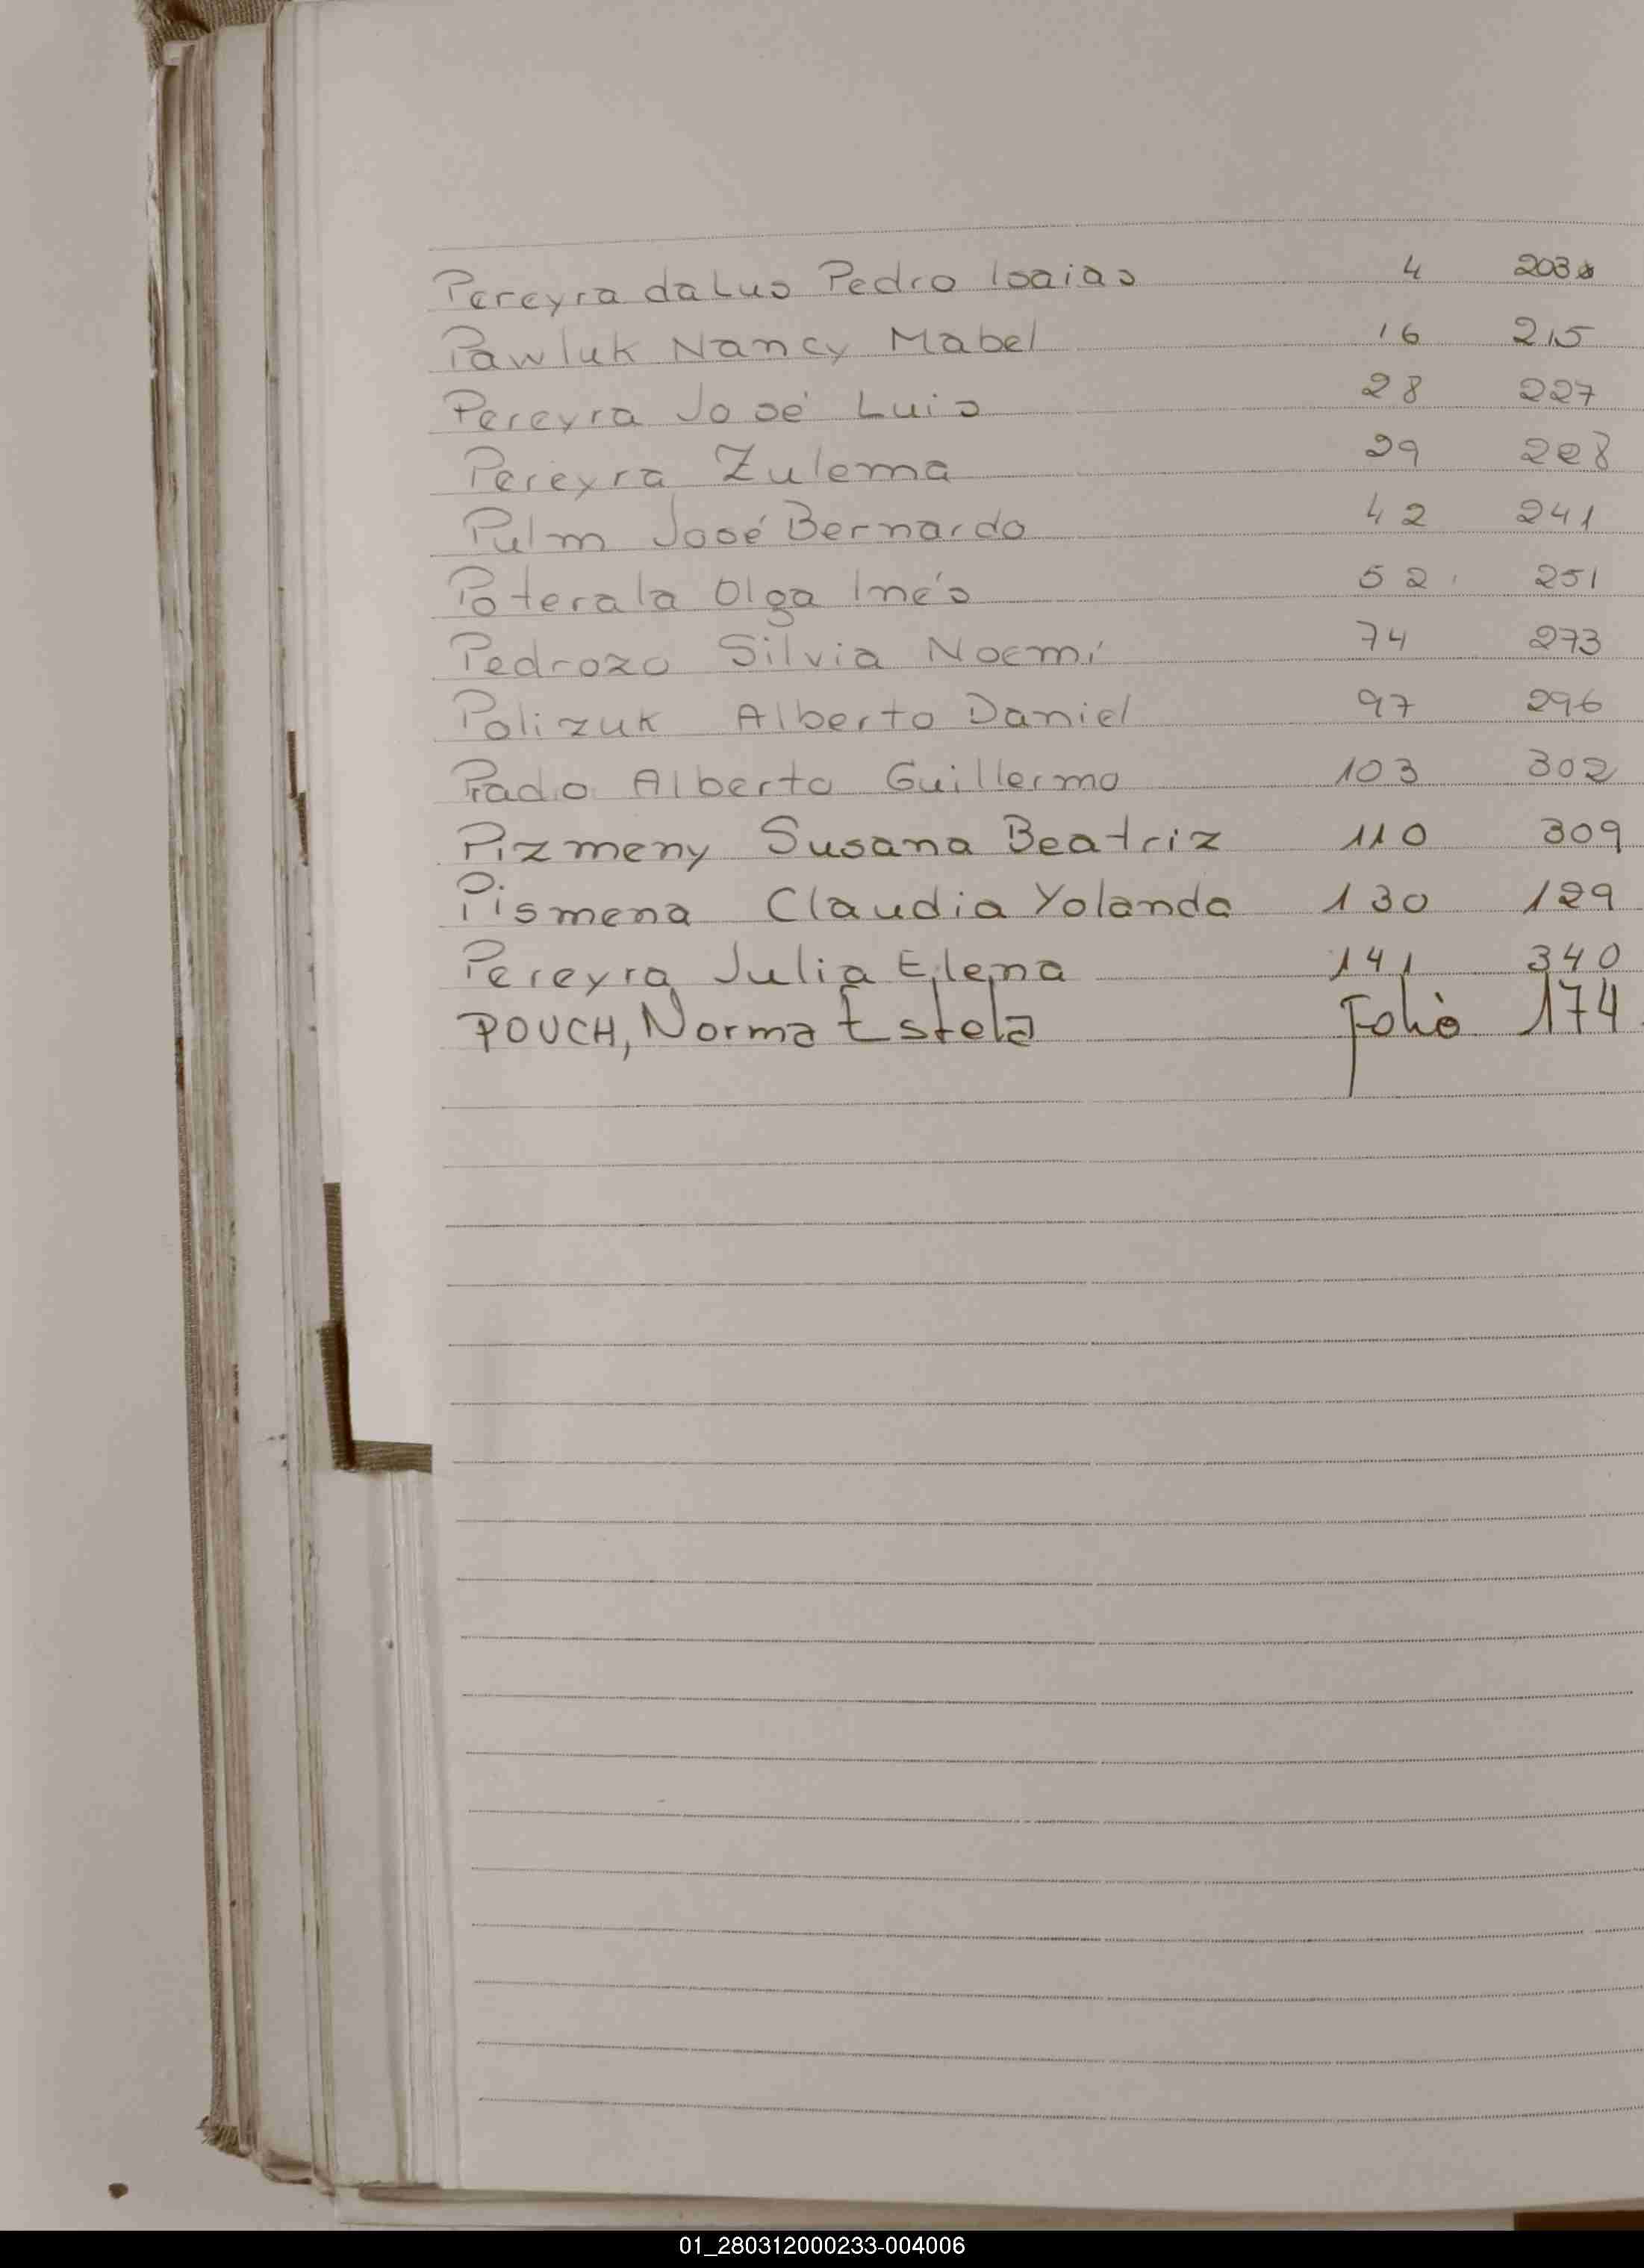 Pereyra da Lus Pedro Isaias 4 203
Pawluk Nancy Mabel 16 215
Pereyra José Luis 28 227
Pereyra Zulema 29 228
Pulm José Bernardo 42 241
Poterala Olga Inés 52 251
Pedrozo Silvia Noemí 74 273
Polizuk Alberto Daniel 97 296
Prado Alberto Guillermo 103 302
Pizmeny Susana Beatriz 110 309
Pismena Claudia Yolanda 130 129
Pereyra Julia Elena 141 340
POUCH, Norma Estela Folio 174
01_280312000233-004006